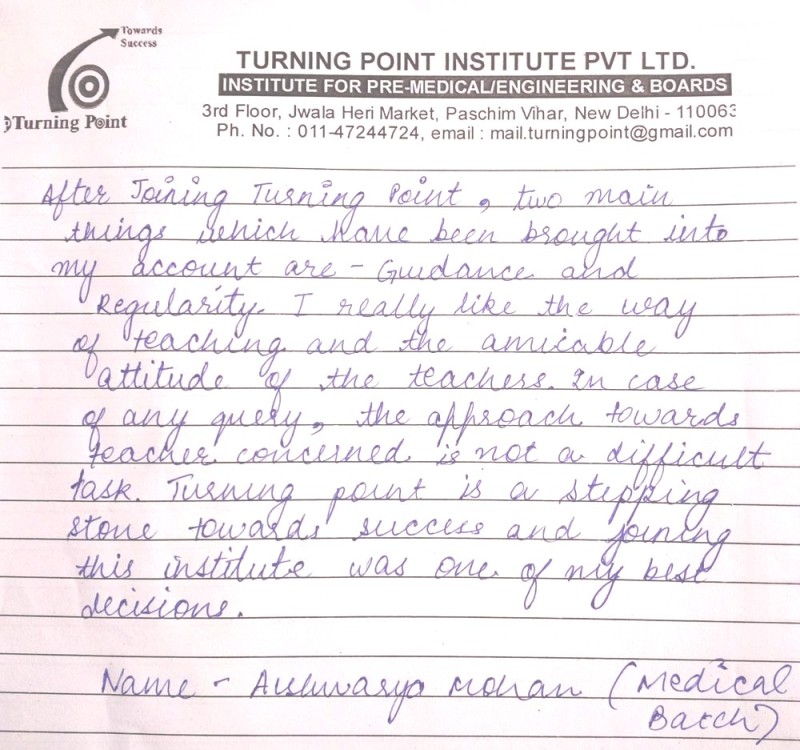 Towards
Success
Turning Point
TURNING POINT INSTITUTE PVT LTD.
INSTITUTE FOR PRE-MEDICAL/ENGINEERING & BOARDS
3rd Floor, Jwala Heri Market, Paschim Vihar, New Delhi - 110063
Ph. No. : 011-47244724, email : mail.turningpoint@gmail.com
After Joining Turning Point, two main
things which have been brought into
my account are - Guidance and
Regularity. I really like the way
of teaching and the amicable
attitude of the teachers. In case
of any query, the approach towards
teacher concerned is not a difficult
task. Turning point is a stepping
stone towards success and joining
this institute was one of my best
decisions.
Name - Aishwarya Mohan (Medical
Batch)